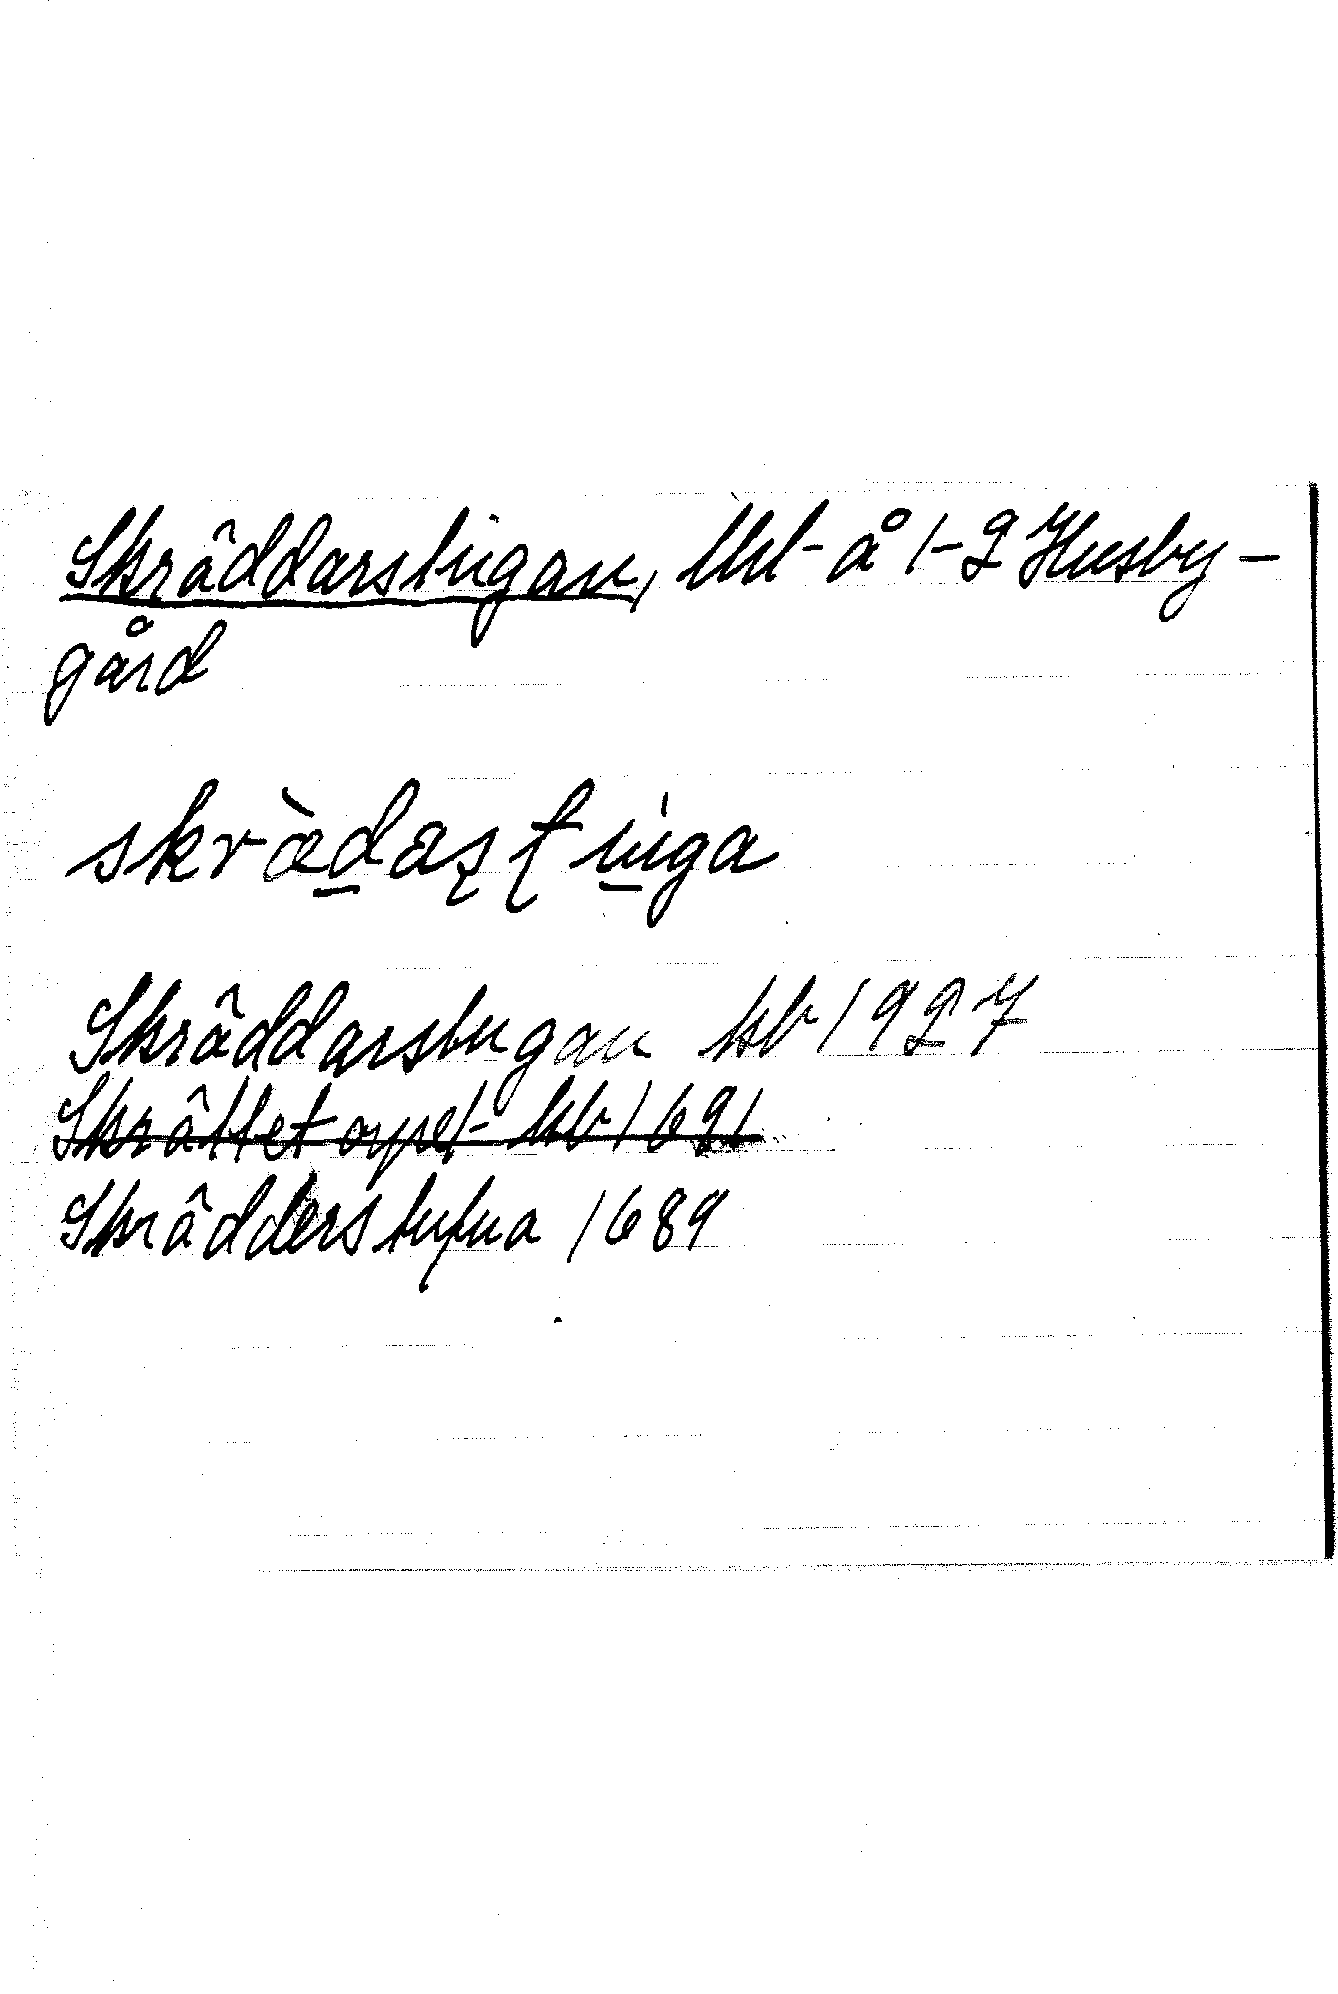 Skräddarstugan, lht å 1-2 Husby-
gård
skrædaʂʈuga
Skräddarstugan kb 1927
Skrättetorpet kb 1691
Skrädderstufua 1689